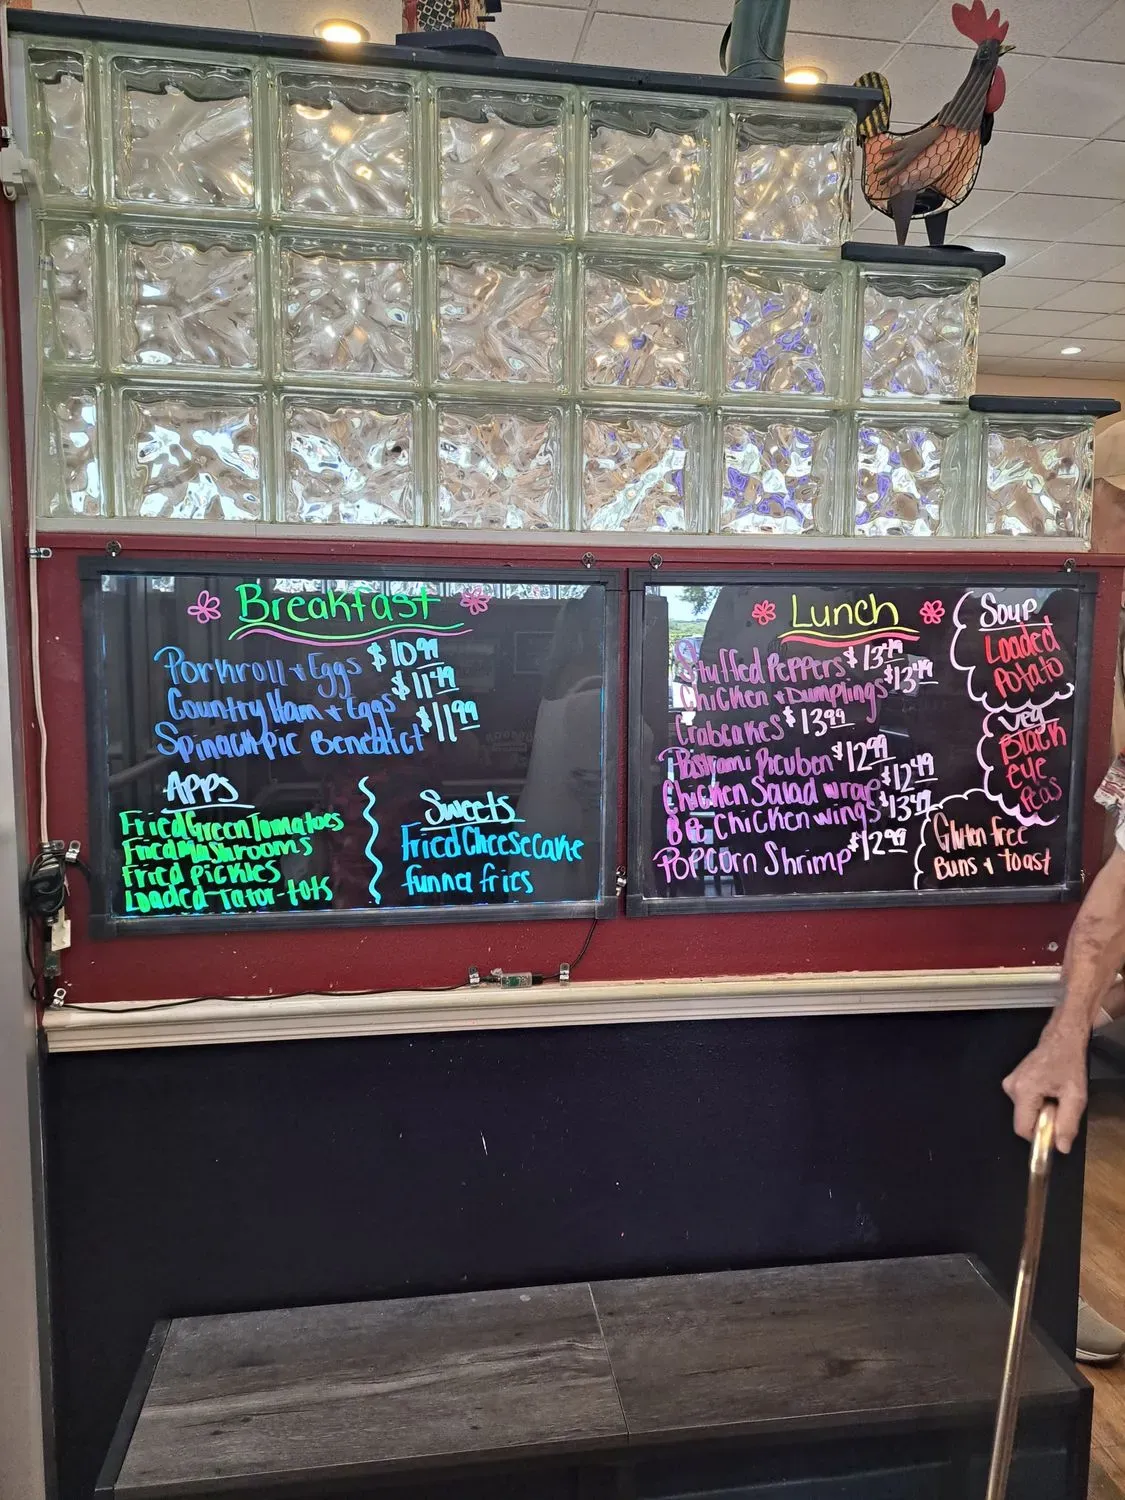 Breakfast
Porkroll + Eggs $10.99
Country Ham + Eggs $11.49
Spinach+pic Benedict $11.99
Apps
Fried Green Tomatoes
Fried Mushrooms
Fried pickles
Loaded Tator-tots
Sweets
Fried Cheesecake
funnel fries
Lunch
Stuffed Peppers $13.49
Chicken + Dumplings $13.49
Crabcakes $13.99
Pastrami Rueben $12.99
Chicken Salad wrap $12.49
Chicken wings $13.49
Popcorn Shrimp $12.99
Soup
Loaded
Potato
Veg
Black
eye
Peas
Gluten free
Buns + toast